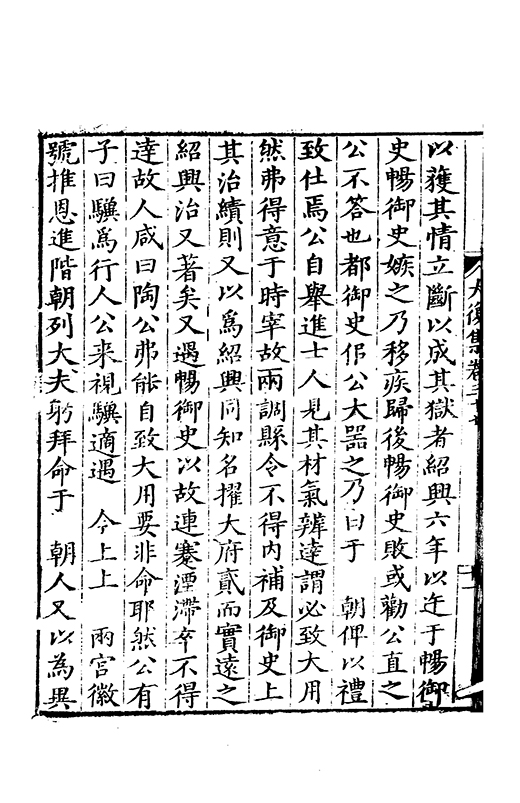 大復集卷三十
以獲其情立斷以成其獄者紹興六年以迕于暢御
史暢御史嫉之乃移疾歸後暢御史敗或勸公直之
公不答也都御史佀公大器之乃曰于　朝俾以禮
致仕焉公自舉進士人見其材氣辨達謂必致大用
然弗得意于時宰故兩調縣令不得内補及御史上
其治績則又以爲紹興同知名擢大府貳而實遠之
紹興治又著矣又遇暢御史以故連蹇湮滯卒不得
達故人咸曰陶公弗能自致大用要非命耶然公有
子曰驥爲行人公来視驥適遇　今上上　兩宮徽
號推恩進階朝列大夫躬拜命于　朝人又以為異